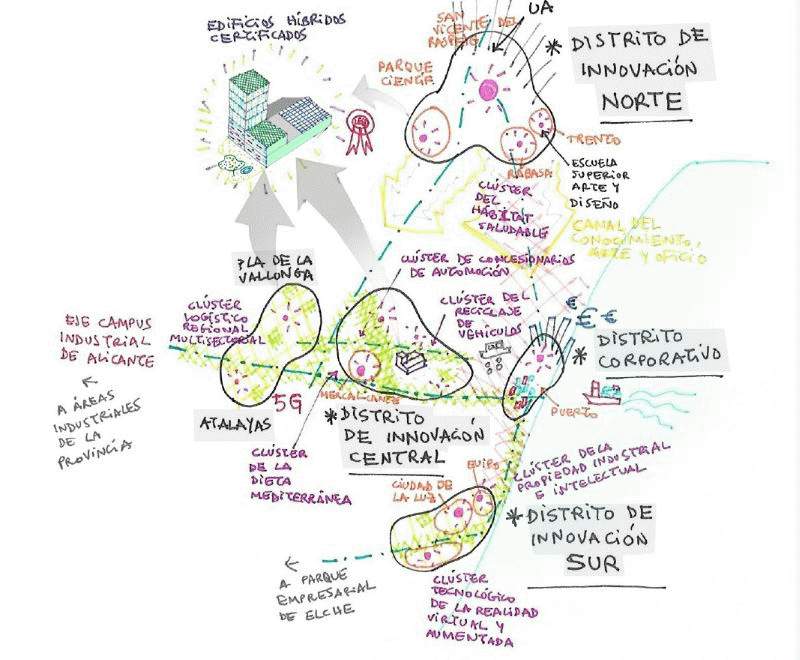 EDIFICIOS HÍBRIDOS
CERTIFICADOS
SAN
VICENTE DEL
RASPEIG
UA
* DISTRITO DE
INNOVACIÓN
NORTE
PARQUE
CIENTÍF.
TRENTO
RABASA
ESCUELA
SUPERIOR
ARTE Y
DISEÑO
CLÚSTER
DEL
HÁBITAT
SALUDABLE
CANAL DEL
CONOCIMIENTO,
ARTE Y OFICIO
PLA DE LA
VALLONGA
CLÚSTER DE CONCESIONARIOS
DE AUTOMOCIÓN
CLÚSTER
LOGÍSTICO
REGIONAL
MULTISECTORIAL
CLÚSTER DEL
RECICLAJE
DE
VEHÍCULOS
€ € €
EJE CAMPUS
INDUSTRIAL
DE ALICANTE
* DISTRITO
CORPORATIVO
A ÁREAS
INDUSTRIALES
DE LA
PROVINCIA
MERCALICANTE
5G
ATALAYAS
PUERTO
* DISTRITO
DE INNOVACIÓN
CENTRAL
CLÚSTER
DE LA
DIETA
MEDITERRÁNEA
EUIPO
CLÚSTER DE LA
PROPIEDAD INDUSTRIAL
E INTELECTUAL
CIUDAD DE
LA LUZ
* DISTRITO DE
INNOVACIÓN
SUR
A PARQUE
EMPRESARIAL
DE ELCHE
CLÚSTER
TECNOLÓGICO
DE LA REALIDAD
VIRTUAL Y
AUMENTADA